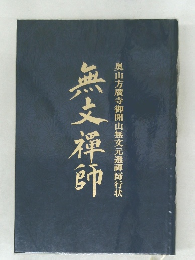 奥山方廣寺御開山無文元選禅師行状
無文禪師